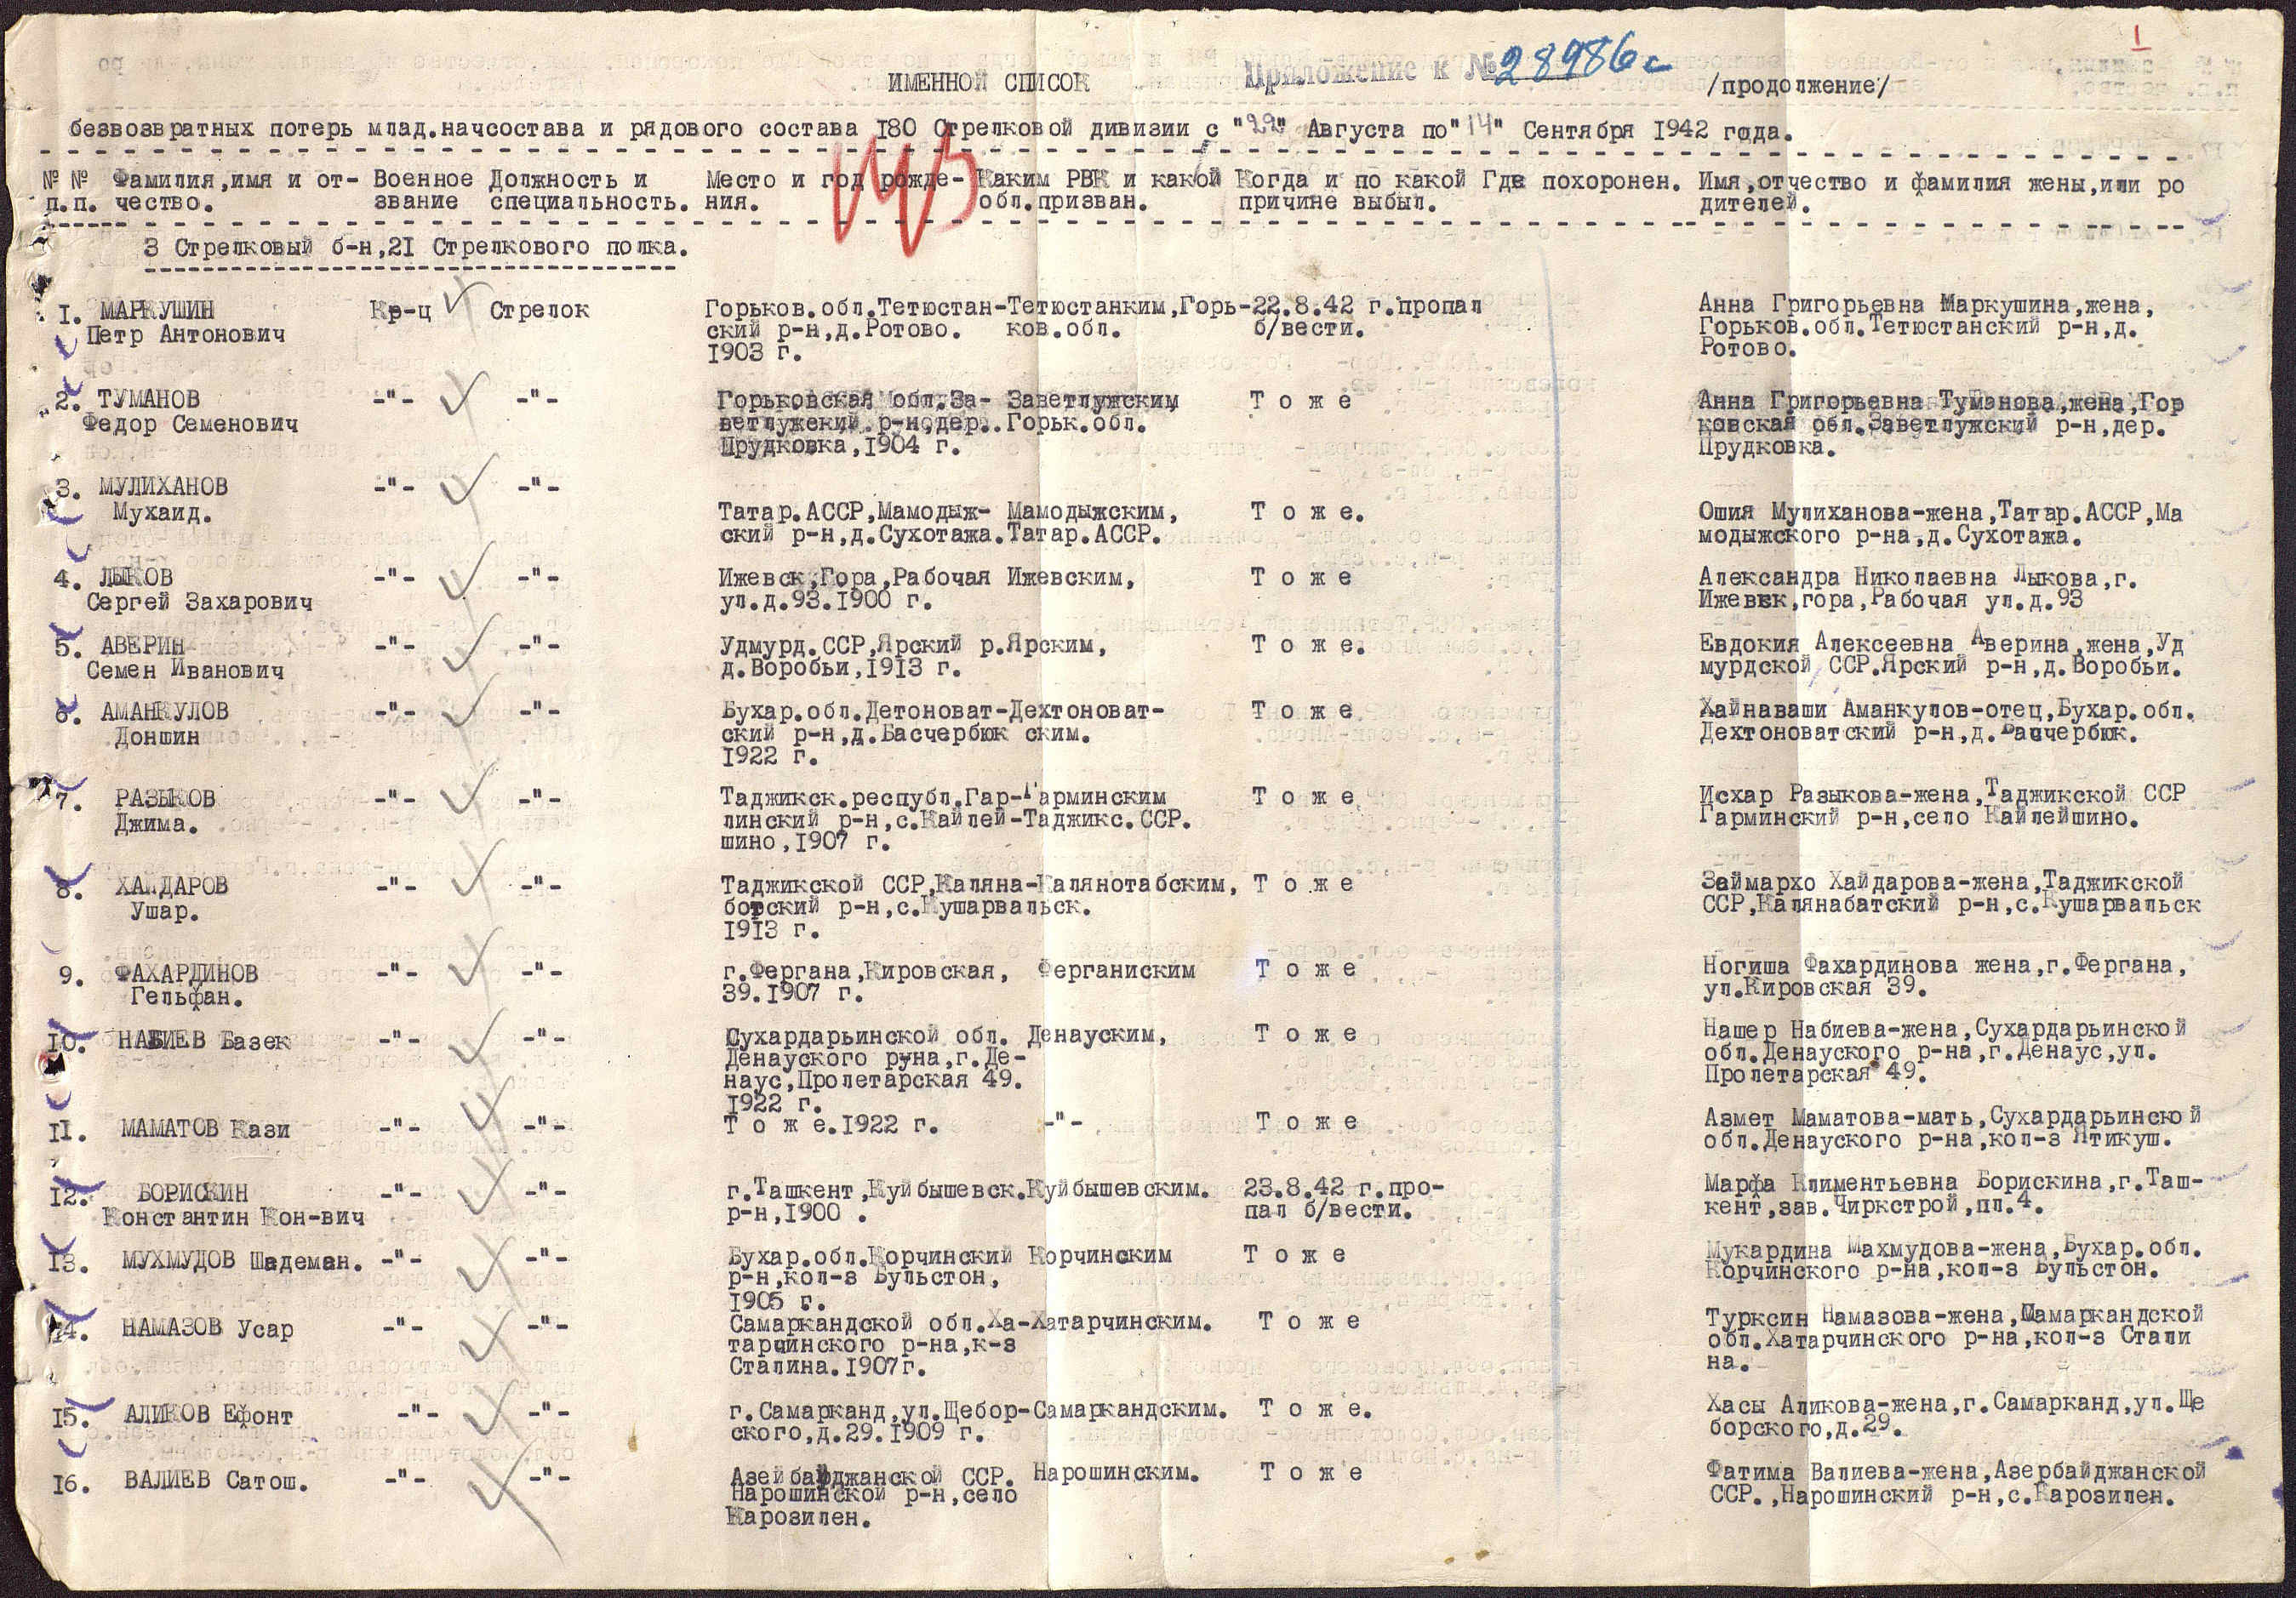 1
ИМЕННОЙ СПИСОК Приложение к № 28986с /продолжение/
безвозвратных потерь млад.начсостава и рядового состава 180 Стрелковой дивизии с "22" Августа по "14" Сентября 1942 года.
№ № Фамилия,имя и от- Военное Должность и Место и год рожде- Каким РВК и какой Когда и по какой Где похоронен. Имя,отчество и фамилия жены,или ро
п.п. чество. звание специальность. ния. обл.призван. причине выбыл. дителей.
3 Стрелковый б-н,21 Стрелкового полка.
1. МАРКУШИН Кр-ц Стрелок Горьков.обл.Тетюстан-Тетюстанким,Горь-22.8.42 г.пропал Анна Григорьевна Маркушина,жена,
Петр Антонович ский р-н,д.Ротово. ков.обл. б/вести. Горьков.обл.Тетюстанский р-н,д.
1903 г. Ротово.
2. ТУМАНОВ -"- -"- Горьковская обл.За- Заветлужским Т о ж е Анна Григорьевна Туманова,жена,Гор
Федор Семенович ветлужский р-н,дер.. Горьк.обл. ковская обл.Заветлужский р-н,дер.
Прудковка,1904 г. Прудковка.
3. МУЛИХАНОВ -"- -"-
Мухаид. Татар.АССР,Мамодыж- Мамодыжским, Т о ж е. Ошия Мулиханова-жена,Татар.АССР,Ма
ский р-н,д.Сухотажа.Татар.АССР. модыжского р-на,д.Сухотажа.
4. ЛЫКОВ -"- -"- Ижевск,Гора,Рабочая Ижевским, Т о ж е Александра Николаевна Лыкова,г.
Сергей Захарович ул.д.93.1900 г. Ижевск,гора,Рабочая ул.д.93
5. АВЕРИН -"- -"- Удмурд.ССР,Ярский р.Ярским, Т о ж е. Евдокия Алексеевна Аверина,жена,Уд
Семен Иванович д.Воробьи,1913 г. мурдской ССР.Ярский р-н,д.Воробьи.
6. АМАНКУЛОВ -"- -"- Бухар.обл.Детоноват-Дехтоноват- Т о ж е Хайнаваши Аманкулов-отец,Бухар.обл.
Доншин ский р-н,д.Басчербюк ским. Дехтоноватский р-н,д.Васчербюк.
1922 г.
7. РАЗЫКОВ -"- -"- Таджикск.республ.Гар-Гарминским Т о ж е Исхар Разыкова-жена,Таджикской ССР
Джима. линский р-н,с.Кайлей-Таджикс.ССР. Гарминский р-н,село Кайлейшино.
шино,1907 г.
8. ХАЙДАРОВ -"- -"- Таджикской ССР,Каляна-Калянотабским, Т о ж е Займархо Хайдарова-жена,Таджикской
Ушар. ботский р-н,с.Кушарвальск. ССР,Калянабатский р-н,с.Кушарвальск
1913 г.
9. ФАХАРДИНОВ -"- -"- г.Фергана,Кировская, Ферганиским Т о ж е Ногиша Фахардинова жена,г.Фергана,
Гельфан. 39.1907 г. ул.Кировская 39.
10. НАБИЕВ Базек -"- -"- Сухардарьинской обл. Денауским, Т о ж е Нашер Набиева-жена,Сухардарьинской
Денауского руна,г.Де- обл.Денауского р-на,г.Денаус,ул.
наус,Пролетарская 49. Пролетарская 49.
1922 г.
11. МАМАТОВ Кази -"- -"- Т о ж е.1922 г. -"- Т о ж е Азмет Маматова-мать,Сухардарьинской
обл.Денауского р-на,кол-з Ятикуш.
12. БОРИСКИН -"- -"- г.Ташкент,Куйбышевск.Куйбышевским. 23.8.42 г.про- Марфа Климентьевна Борискина,г.Таш-
Константин Кон-вич р-н,1900 . пал б/вести. кент,зав.Чиркстрой,пл.4.
13. МУХМУДОВ Шадеман. -"- -"- Бухар.обл.Корчинский Корчинским Т о ж е Мукардина Махмудова-жена,Бухар.обл.
р-н,кол-з Бульстон, Корчинского р-на,кол-з Бульстон.
1905 г.
14. НАМАЗОВ Усар -"- -"- Самаркандской обл.Ха-Хатарчинским. Т о ж е Турксин Намазова-жена,Самаркандской
тарчинского р-на,к-з обл.Хатарчинского р-на,кол-з Стали
Сталина.1907г. на.
15. АЛИКОВ Ефонт -"- -"- г.Самарканд,ул.Щебор-Самаркандским. Т о ж е. Хасы Аликова-жена,г.Самарканд,ул.Ще
ского,д.29.1909 г. борского,д.29.
16. ВАЛИЕВ Сатош. -"- -"- Азейбайджанской ССР. Нарошинским. Т о ж е Фатима Валиева-жена,Азербайджанской
Нарошинской р-н,село ССР.,Нарошинский р-н,с.Карозилен.
Карозилен.